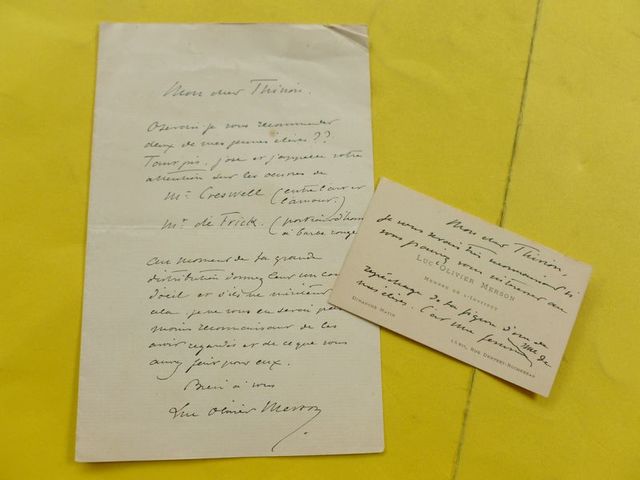 Mon cher Thirion.
Oserais-je vous recommander
deux de mes jeunes élèves??
Tant pis, j'ose et j'appelle votre
attention sur les œuvres de
Mr Creswell (entre l'art et
l'amour.)
Mr de Frick. (portrait d'homme
à barbe rouge
Au moment de la grande
distribution donnez leur un cou
d'oeil et s'ils ne méritent
cela je ne vous en serai pas
moins reconnaissant de les
avoir regardés et de ce que vous
aurez fait pour eux.
Bien à vous
Luc Olivier Merson
Mon cher Thirion,
Je vous serais très reconnaissant si
vous pouviez vous intéresser au
LUC OLIVIER MERSON
MEMBRE DE L'INSTITUT
repêchage de la figure d'une de
mes élèves. C'est une femme
DIMANCHE MATIN
RUE DENFERT-ROCHEREAU